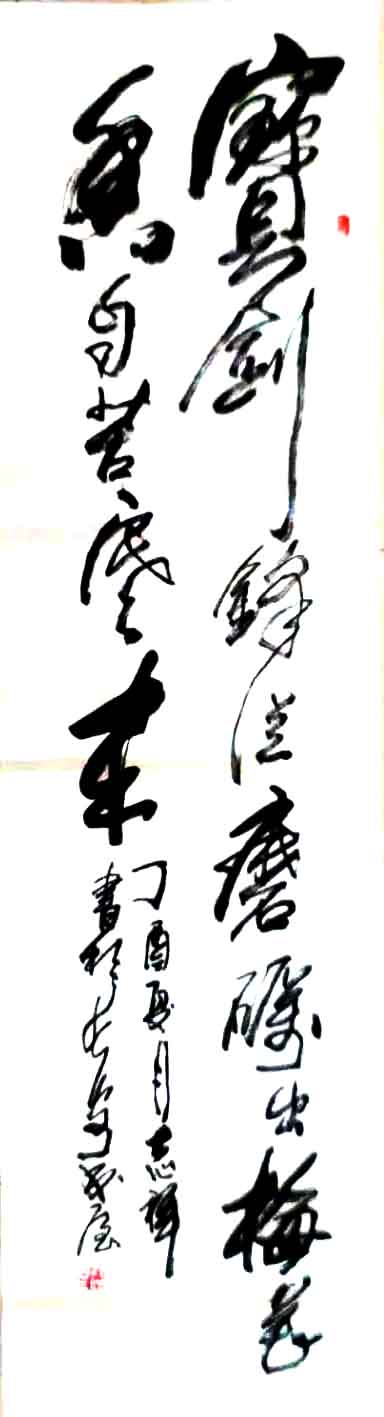 寶劍鋒從磨礪出梅花
香自苦寒来
丁酉夏月志輝
書於長安